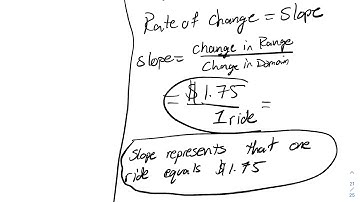 Rate of Change = Slope
slope = Change in Range / Change in Domain
= $1.75 / 1 ride =
Slope represents that one
ride equals $1.75
21 / 25